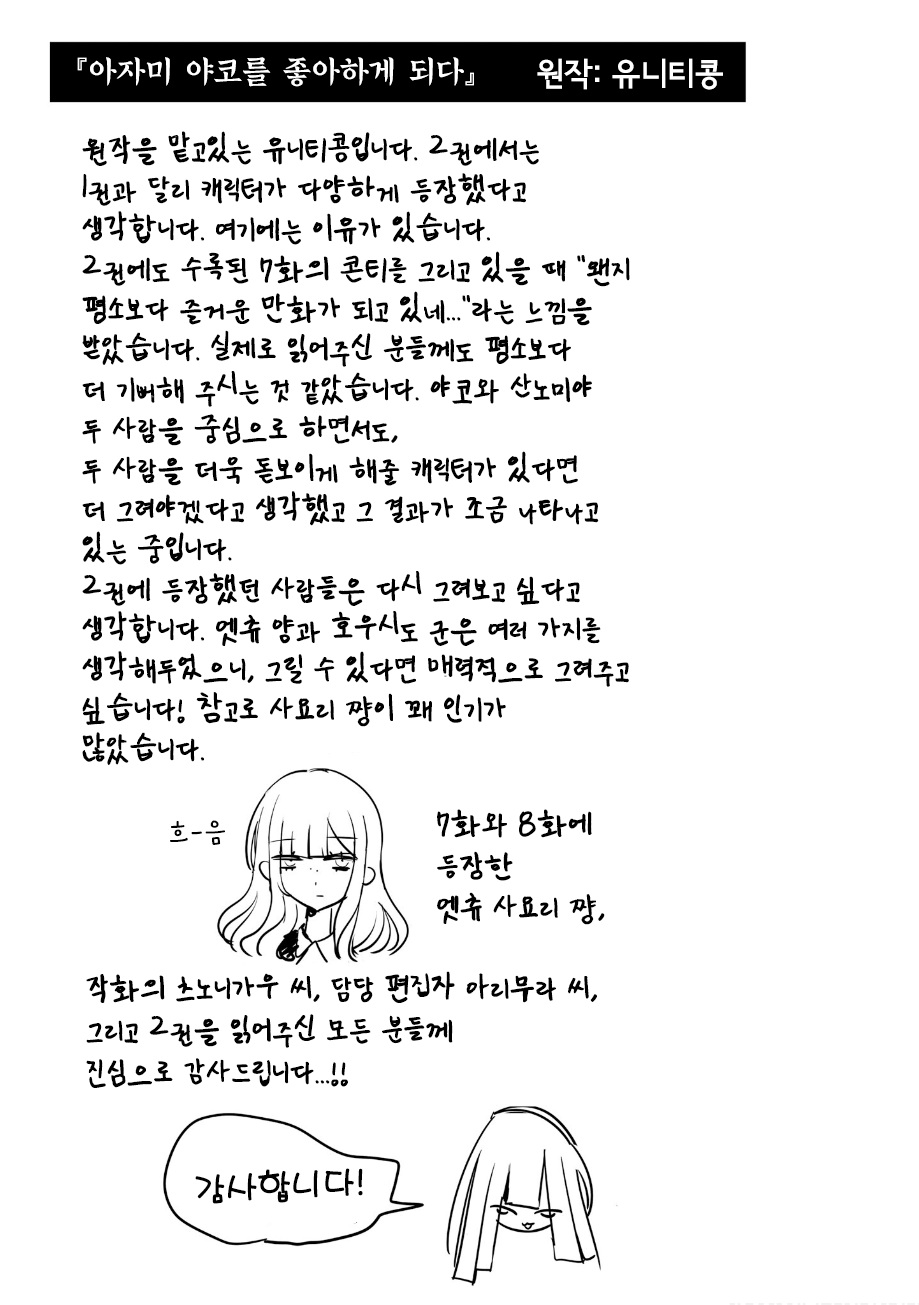 『아자미 야코를 좋아하게 되다』 원작: 유니티콩
원작을 맡고있는 유니티콩입니다. 2권에서는
1권과 달리 캐릭터가 다양하게 등장했다고
생각합니다. 여기에는 이유가 있습니다.
2권에도 수록된 7화의 콘티를 그리고 있을 때 "왠지
평소보다 즐거운 만화가 되고 있네..."라는 느낌을
받았습니다. 실제로 읽어주신 분들께도 평소보다
더 기뻐해 주시는 것 같았습니다. 야코와 산노미야
두 사람을 중심으로 하면서도,
두 사람을 더욱 돋보이게 해줄 캐릭터가 있다면
더 그려야겠다고 생각했고 그 결과가 조금 나타나고
있는 중입니다.
2권에 등장했던 사람들은 다시 그려보고 싶다고
생각합니다. 엣츄 양과 호우시도 군은 여러 가지를
생각해두었으니, 그릴 수 있다면 매력적으로 그려주고
싶습니다! 참고로 사요리 쨩이 꽤 인기가
많았습니다.
흐-음
7화와 8화에
등장한
엣츄 사요리 쨩,
작화의 츠노니가우 씨, 담당 편집자 아리무라 씨,
그리고 2권을 읽어주신 모든 분들께
진심으로 감사드립니다...!!
감사합니다!